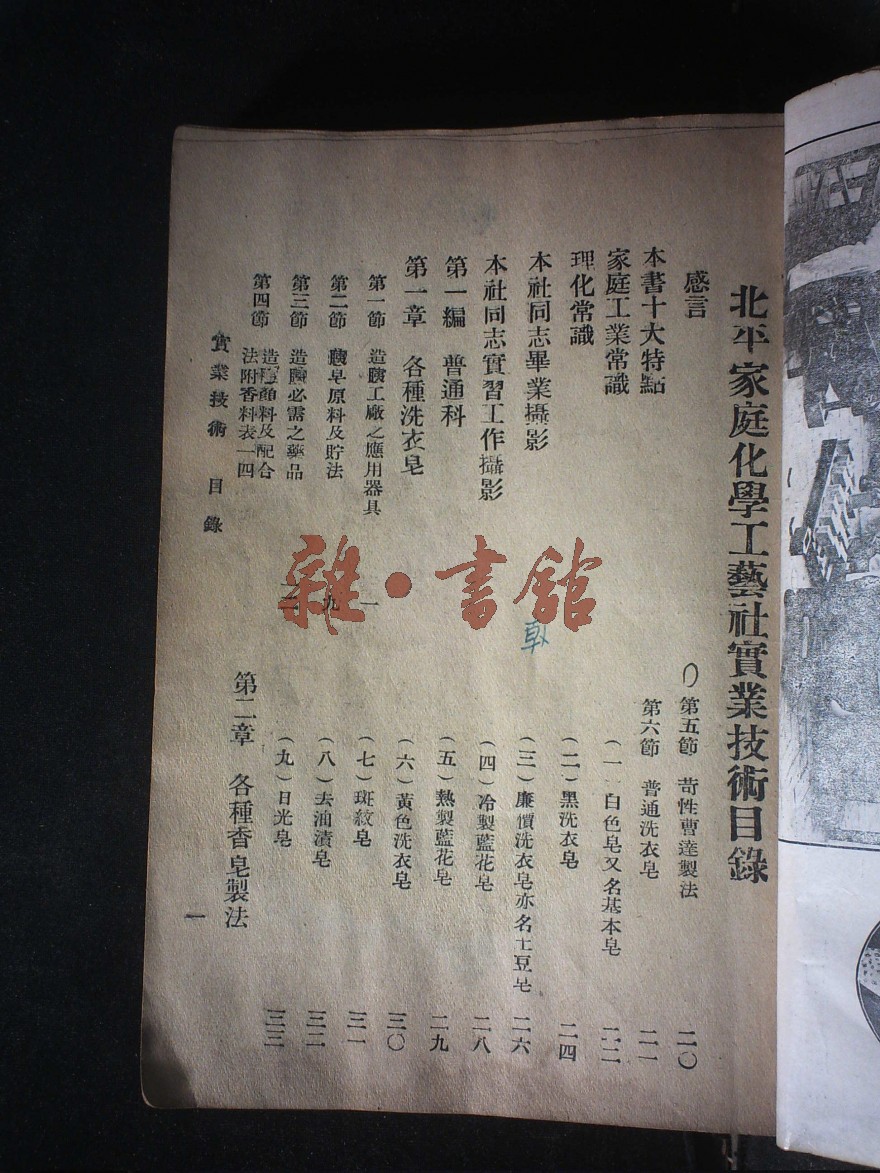 北平家庭化學工藝社實業技術目錄
感言
本書十大特點
家庭工業常識
理化常識
本社同志畢業攝影
本社同志實習工作攝影
第一編 普通科
第一章 各種洗衣皂
第一節 造胰工廠之應用器具 一
第二節 製皂原料及貯法 九
第三節 造胰必需之藥品 一二
第四節 造胰顏料及配合法附香料表一四
第五節 苛性曹達製法 二〇
第六節 普通洗衣皂 二一
(一)白色皂又名基本皂 二二
(二)黑洗衣皂 二四
(三)廉價洗衣皂亦名土豆皂 二六
(四)冷製藍花皂 二八
(五)熱製藍花皂 二九
(六)黃色洗衣皂 三〇
(七)斑紋皂 三一
(八)去油漬皂 三二
(九)日光皂 三三
第二章 各種香皂製法
實業技術 目錄
一
雜·書館